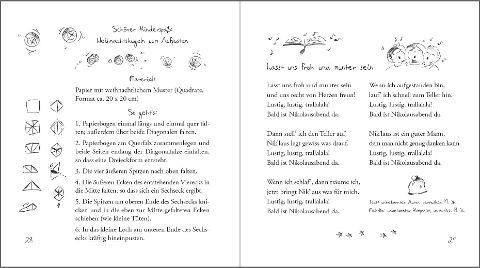 Schöner Händespaß:
Weihnachtskugeln zum Aufpusten
Material:
Papier mit weihnachtlichem Muster (Quadrate,
Format ca. 20 x 20 cm)
So geht's:
1. Papierbogen einmal längs und einmal quer fal-
ten; außerdem über beide Diagonalen falzen.
2. Papierbogen am Querfalz zusammenlegen und
beide Seiten entlang der Diagonalfalze einfalten,
so dass eine Dreieckform entsteht.
3. Die vier äußeren Spitzen nach oben falten.
4. Die äußeren Ecken des entstehenden Vierecks in
die Mitte falten, so dass sich ein Sechseck ergibt.
5. Die Spitzen am oberen Ende des Sechsecks kni-
cken und in die eben zur Mitte gefalteten Ecken
schieben (wie kleine Tüten).
6. In das kleine Loch am unteren Ende des Sechs-
ecks kräftig hineinpusten.
28
Lasst uns froh und munter sein
Lasst uns froh und munter sein
und uns recht von Herzen freun!
Lustig, lustig, trallalala!
Bald ist Nikolausabend da.
Dann stell' ich den Teller auf,
Nik'laus legt gewiss was drauf.
Lustig, lustig, trallalala!
Bald ist Nikolausabend da.
Wenn ich schlaf', dann träume ich,
jetzt bringt Nik'laus was für mich.
Lustig, lustig, trallalala!
Bald ist Nikolausabend da.
Wenn ich aufgestanden bin,
lauf' ich schnell zum Teller hin.
Lustig, lustig, trallalala!
Bald ist Nikolausabend da.
Nik'laus ist ein guter Mann,
dem man nicht genug danken kann.
Lustig, lustig, trallalala!
Bald ist Nikolausabend da.
29